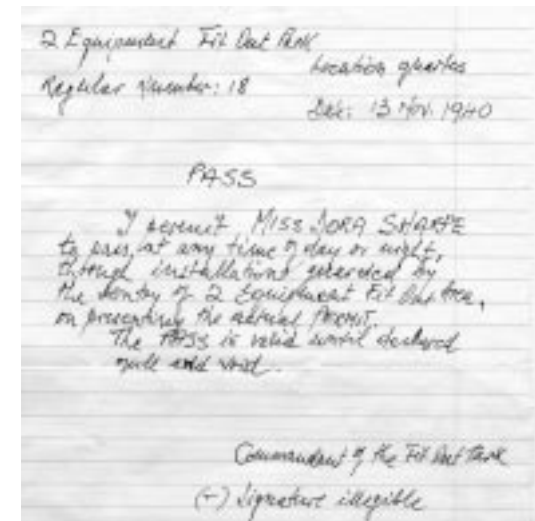 2 Equipment Fit Out Park
Location quarter
Regular Number: 18
Date: 13 Nov. 1940
PASS
I permit MISS DORA SHARPE
to pass, at any time of day or night,
through installations guarded by
the sentry of 2 Equipment Fit Out Area,
on presenting the actual PERMIT.
The PASS is valid until declared
null and void.
Commandant of the Fit Out Park
(-) Signature illegible